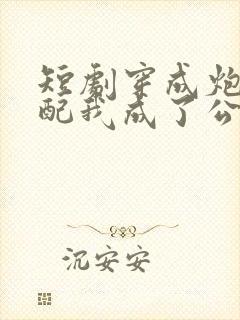 短剧穿成炮
配我成了公
沉安安